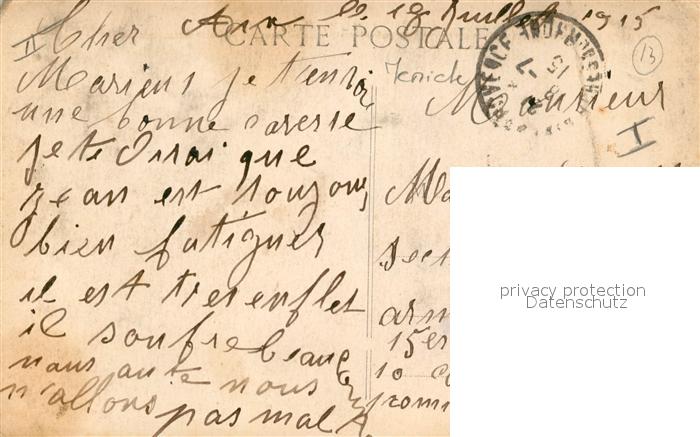 Aix le 18 Juillet 1915
CARTE POSTALE
Cher
Marius je t'envoie
une bonne caresse
je te dirai que
jean est toujours
bien fatiguer
il est tres enflet
il soufre beaucoup
nous aute nous
n'allons pas mal
Monsieur
Ma
sect
arm
15e
10 c
13
II
I
privacy protection
Datenschutz